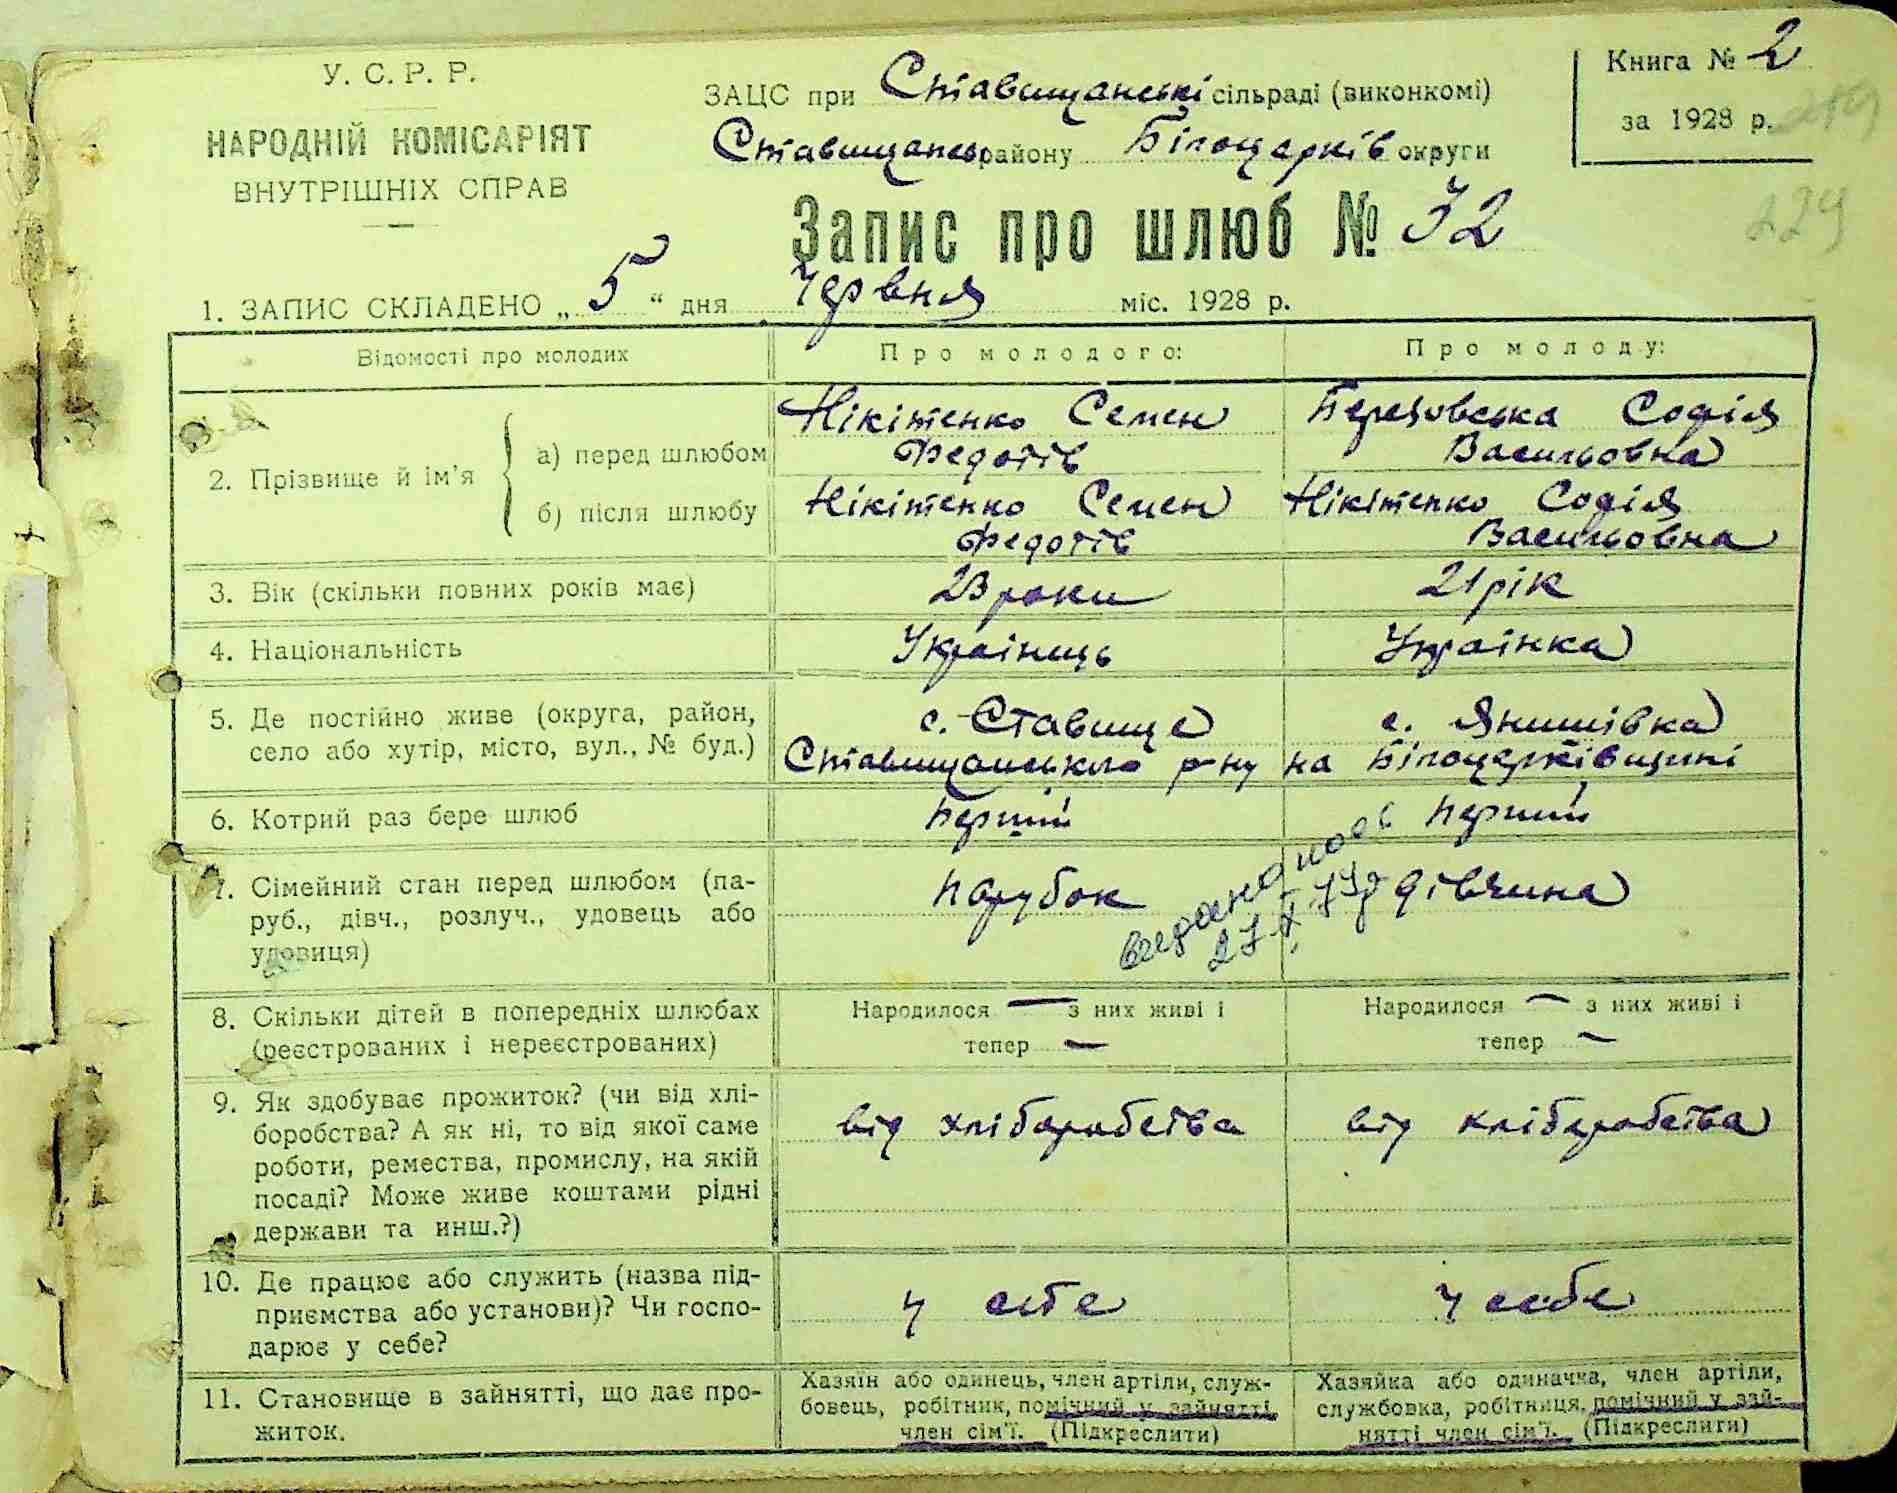 У. С. Р. Р.
НАРОДНІЙ КОМІСАРІЯТ
ВНУТРІШНІХ СПРАВ
ЗАЦС при Ставищанські сільраді (виконкомі)
Ставищансь району Білоцерків округи
Книга № 2
за 1928 р.
219
229
Запис про шлюб № 32
1. ЗАПИС СКЛАДЕНО „ 5 “ дня Червня міс. 1928 р.
Відомості про молодих
Про молодого:
Про молоду:
2. Прізвище й ім’я
а) перед шлюбом
Нікітенко Семен
Федотів
Березовська Софія
Васильовна
б) після шлюбу
Нікітенко Семен
Федотів
Нікітенко Софія
Васильовна
3. Вік (скільки повних років має)
23 роки
21 рік
4. Національність
Українець
Українка
5. Де постійно живе (округа, район,
село або хутір, місто, вул., № буд.)
с. Ставище
с. Янишівка
Ставищанського р-ну на Білоцерківщині
6. Котрий раз бере шлюб
Перший
Перший
7. Сімейний стан перед шлюбом (па-
руб., дівч., розлуч., удовець або
удовиця)
Парубок
дівчина
8. Скільки дітей в попередніх шлюбах
(реєстрованих і нереєстрованих)
Народилося — з них живі і
тепер —
Народилося — з них живі і
тепер —
9. Як здобуває прожиток? (чи від хлі-
боробства? А як ні, то від якої саме
роботи, ремества, промислу, на якій
посаді? Може живе коштами рідні
держави та инш.?)
від хліборобства
від хліборобства
10. Де працює або служить (назва під-
приємства або установи)? Чи госпо-
дарює у себе?
у себе
у себе
11. Становище в зайнятті, що дає про-
житок.
Хазяїн або одинець, член артіли, служ-
бовець, робітник, помічний у зайнятті
член сім’ї. (Підкреслити)
Хазяйка або одиначка, член артіли,
службовка, робітниця, помічний у зай-
нятті член сім’ї. (Підкреслити)